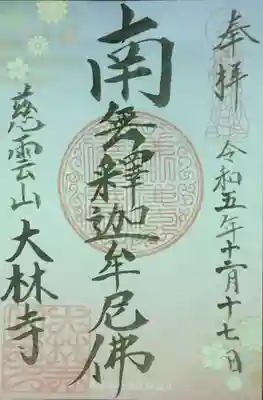 奉拝
令和五年十二月十七日
南無釋迦牟尼佛
慈雲山 大林寺